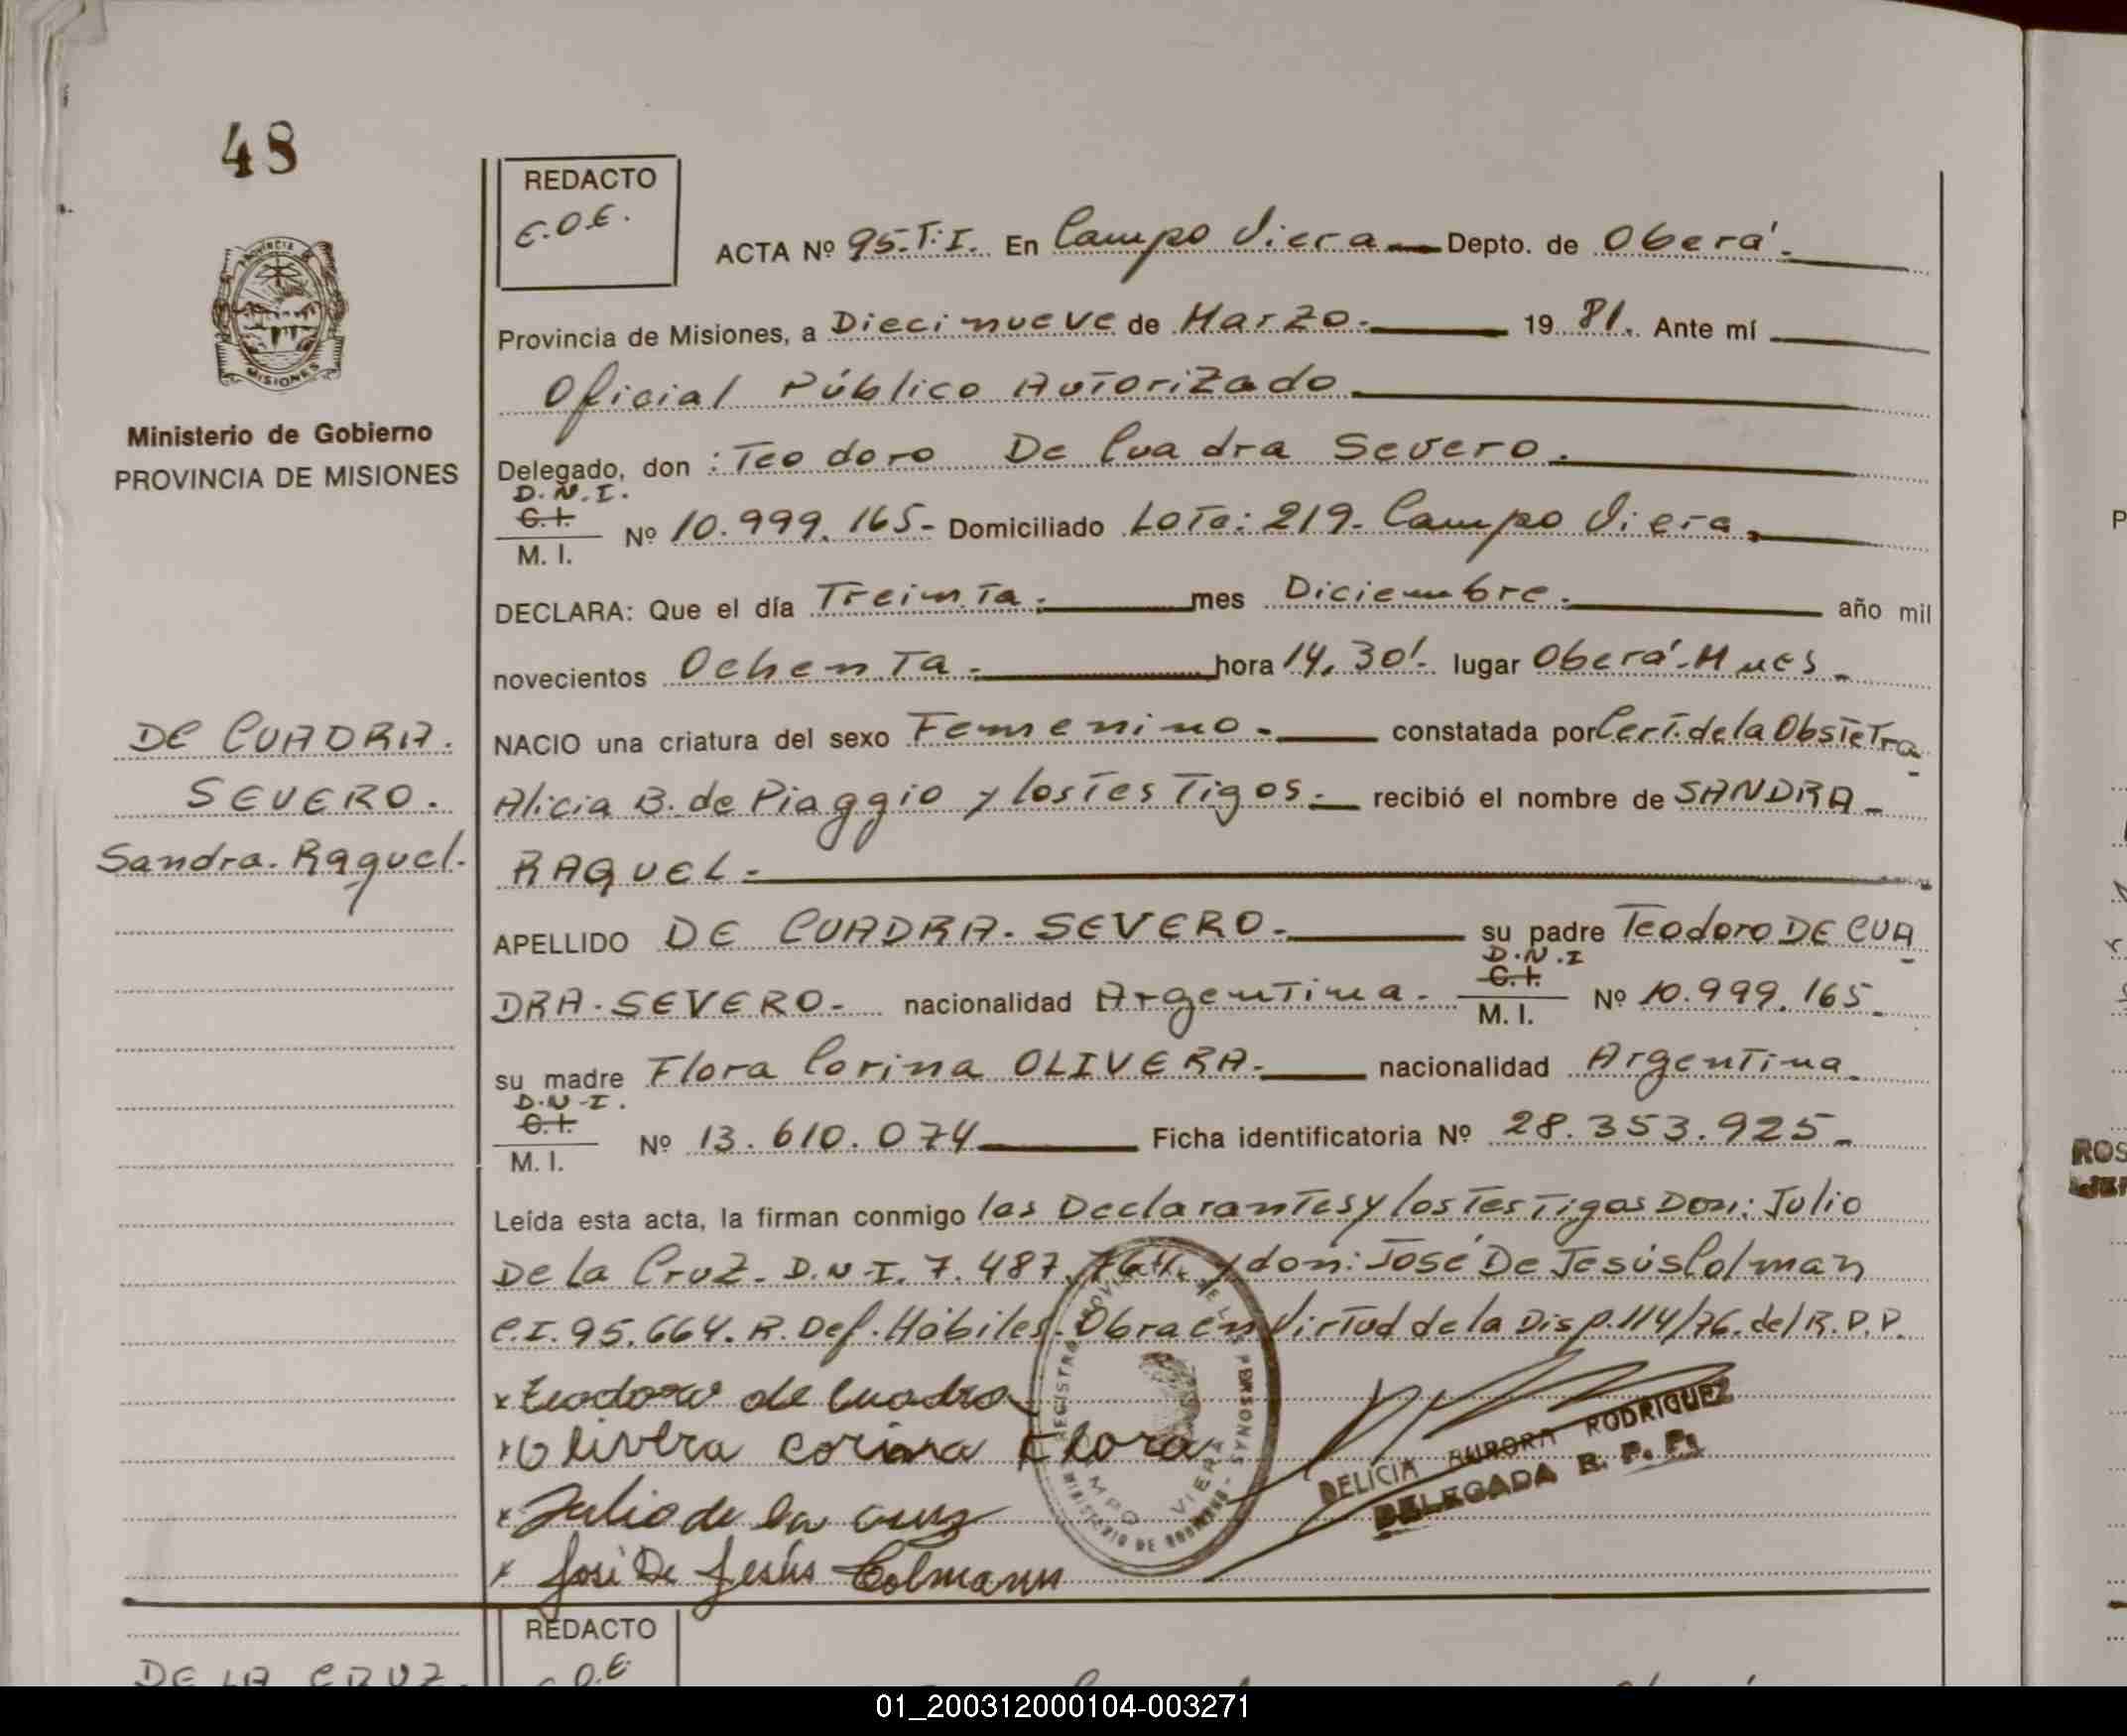 48
REDACTO
C.O.E.
PROVINCIA
MISIONES
Ministerio de Gobierno
PROVINCIA DE MISIONES
ACTA Nº 95-T.I. En Campo Viera Depto. de Oberá.
Provincia de Misiones, a Diecinueve de Marzo. 19 81. Ante mí
Oficial Público Autorizado
Delegado, don : Teodoro De Cuadra Severo.
D.N.I.
C.I.
M. I. Nº 10.999.165- Domiciliado Lote: 219. Campo Viera.
DECLARA: Que el día Treinta. mes Diciembre. año mil
novecientos Ochenta. hora 14,30'. lugar Oberá-Mnes.
DE CUADRA. NACIO una criatura del sexo Femenino. constatada por Cert. de la Obstetra
SEVERO. Alicia B. de Piaggio y los Testigos. recibió el nombre de SANDRA-
Sandra. Raquel. RAQUEL.
APELLIDO DE CUADRA. SEVERO. su padre Teodoro DE CUA
DRA. SEVERO. nacionalidad Argentina. D.N.I C.I. M. I. Nº 10.999.165
su madre Flora Corina OLIVERA. nacionalidad Argentina.
D.N.I.
C.I.
M. I. Nº 13.610.074 Ficha identificatoria Nº 28.353.925-
Leída esta acta, la firman conmigo los Declarantes y los Testigos Don: Julio
De la Cruz. D.N.I. 7.487.764. y don: José De Jesús Colman
C.I. 95.664. R. Def. Hábiles. Obra en Virtud de la Disp. 114/76. del R.P.P.
x Teodoro de Cuadra
x Olivera Corina Flora
x Julio de la cruz
x José De Jesús Colmann
REGISTRO PROVINCIAL DE LAS PERSONAS
CAMPO VIERA
MINISTERIO DE GOBIERNO
DELICIA AURORA RODRIGUEZ
DELEGADA R. P. P.
REDACTO
C.O.E.
DE LA CRUZ.
ROS
01_200312000104-003271